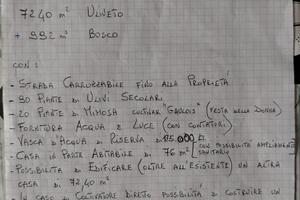 7240 m² ULIVETO
+ 992 m² BOSCO
CON:
- STRADA CARROZZABILE FINO ALLA PROPRIETÀ
- 90 PIANTE DI ULIVI SECOLARI
- 20 PIANTE DI MIMOSA CULTIVAR "GAULOIS" (FESTA DELLA DONNA)
- FORNITURA ACQUA E LUCE (CON CONTATORI)
- VASCA D'ACQUA DI RISERVA DI 15.000 LT.
- CASA IN PARTE ABITABILE DI 76 m² (CON POSSIBILITÀ AMPLIAMENTO SANITARIO
- POSSIBILITÀ DI EDIFICARE (OLTRE ALL'ESISTENTE) UN ALTRA
CASA DI 72,40 m²
- IN CASO DI COLTIVATORE DIRETTO POSSIBILITÀ DI COSTRUIRE UN